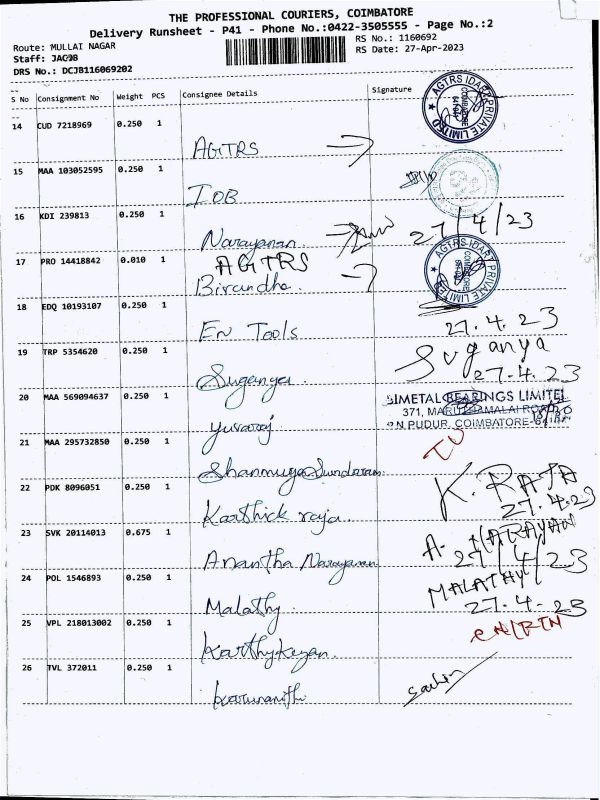 THE PROFESSIONAL COURIERS, COIMBATORE
Delivery Runsheet - P41 - Phone No.:0422-3505555 - Page No.:2
Route: MULLAI NAGAR
RS No.: 1160692
Staff:
RS Date: 27-Apr-2023
DRS No.: DCJB116069202
S No Consignment No Weight PCS Consignee Details Signature
14 CUD 7218969 0.250 1
AGTRS
AGTRS IDAPP PRIVATE LIMITED COIMBATORE
15 MAA 103052595 0.250 1
IOB
16 KDI 239813 0.250 1
Narayanan 27/4/23
17 PRO 14418842 0.010 1
AGTRS
Birundha.
AGTRS PRIVATE LIMITED COIMBATORE
18 EDQ 10193107 0.250 1
En Tools 27.4.23
19 TRP 5354620 0.250 1
Suganya
Suganya 27-4.23
20 MAA 569094637 0.250 1
Yuvaraj
SIMETAL BEARINGS LIMITED
371,
PUDUR, COIMBATORE-
21 MAA 295732850 0.250 1
Shanmuga Sundaram
22 PDK 8096051 0.250 1
Karthick raja.
K. RAJA
27.4.23
23 SVK 20114013 0.675 1
Anantha Narayanan
A. NARAYAN
27/4/23
24 POL 1546893 0.250 1
Malathy.
MALATHY
27.4.23
25 VPL 218013002 0.250 1
Karthykeyan.
26 TVL 372011 0.250 1
Karunanithi